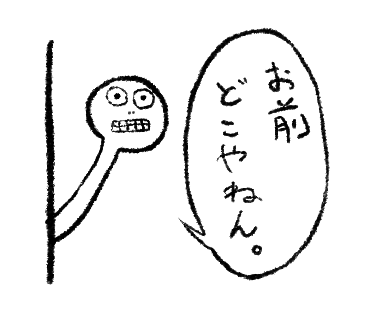 お前
どこやねん。